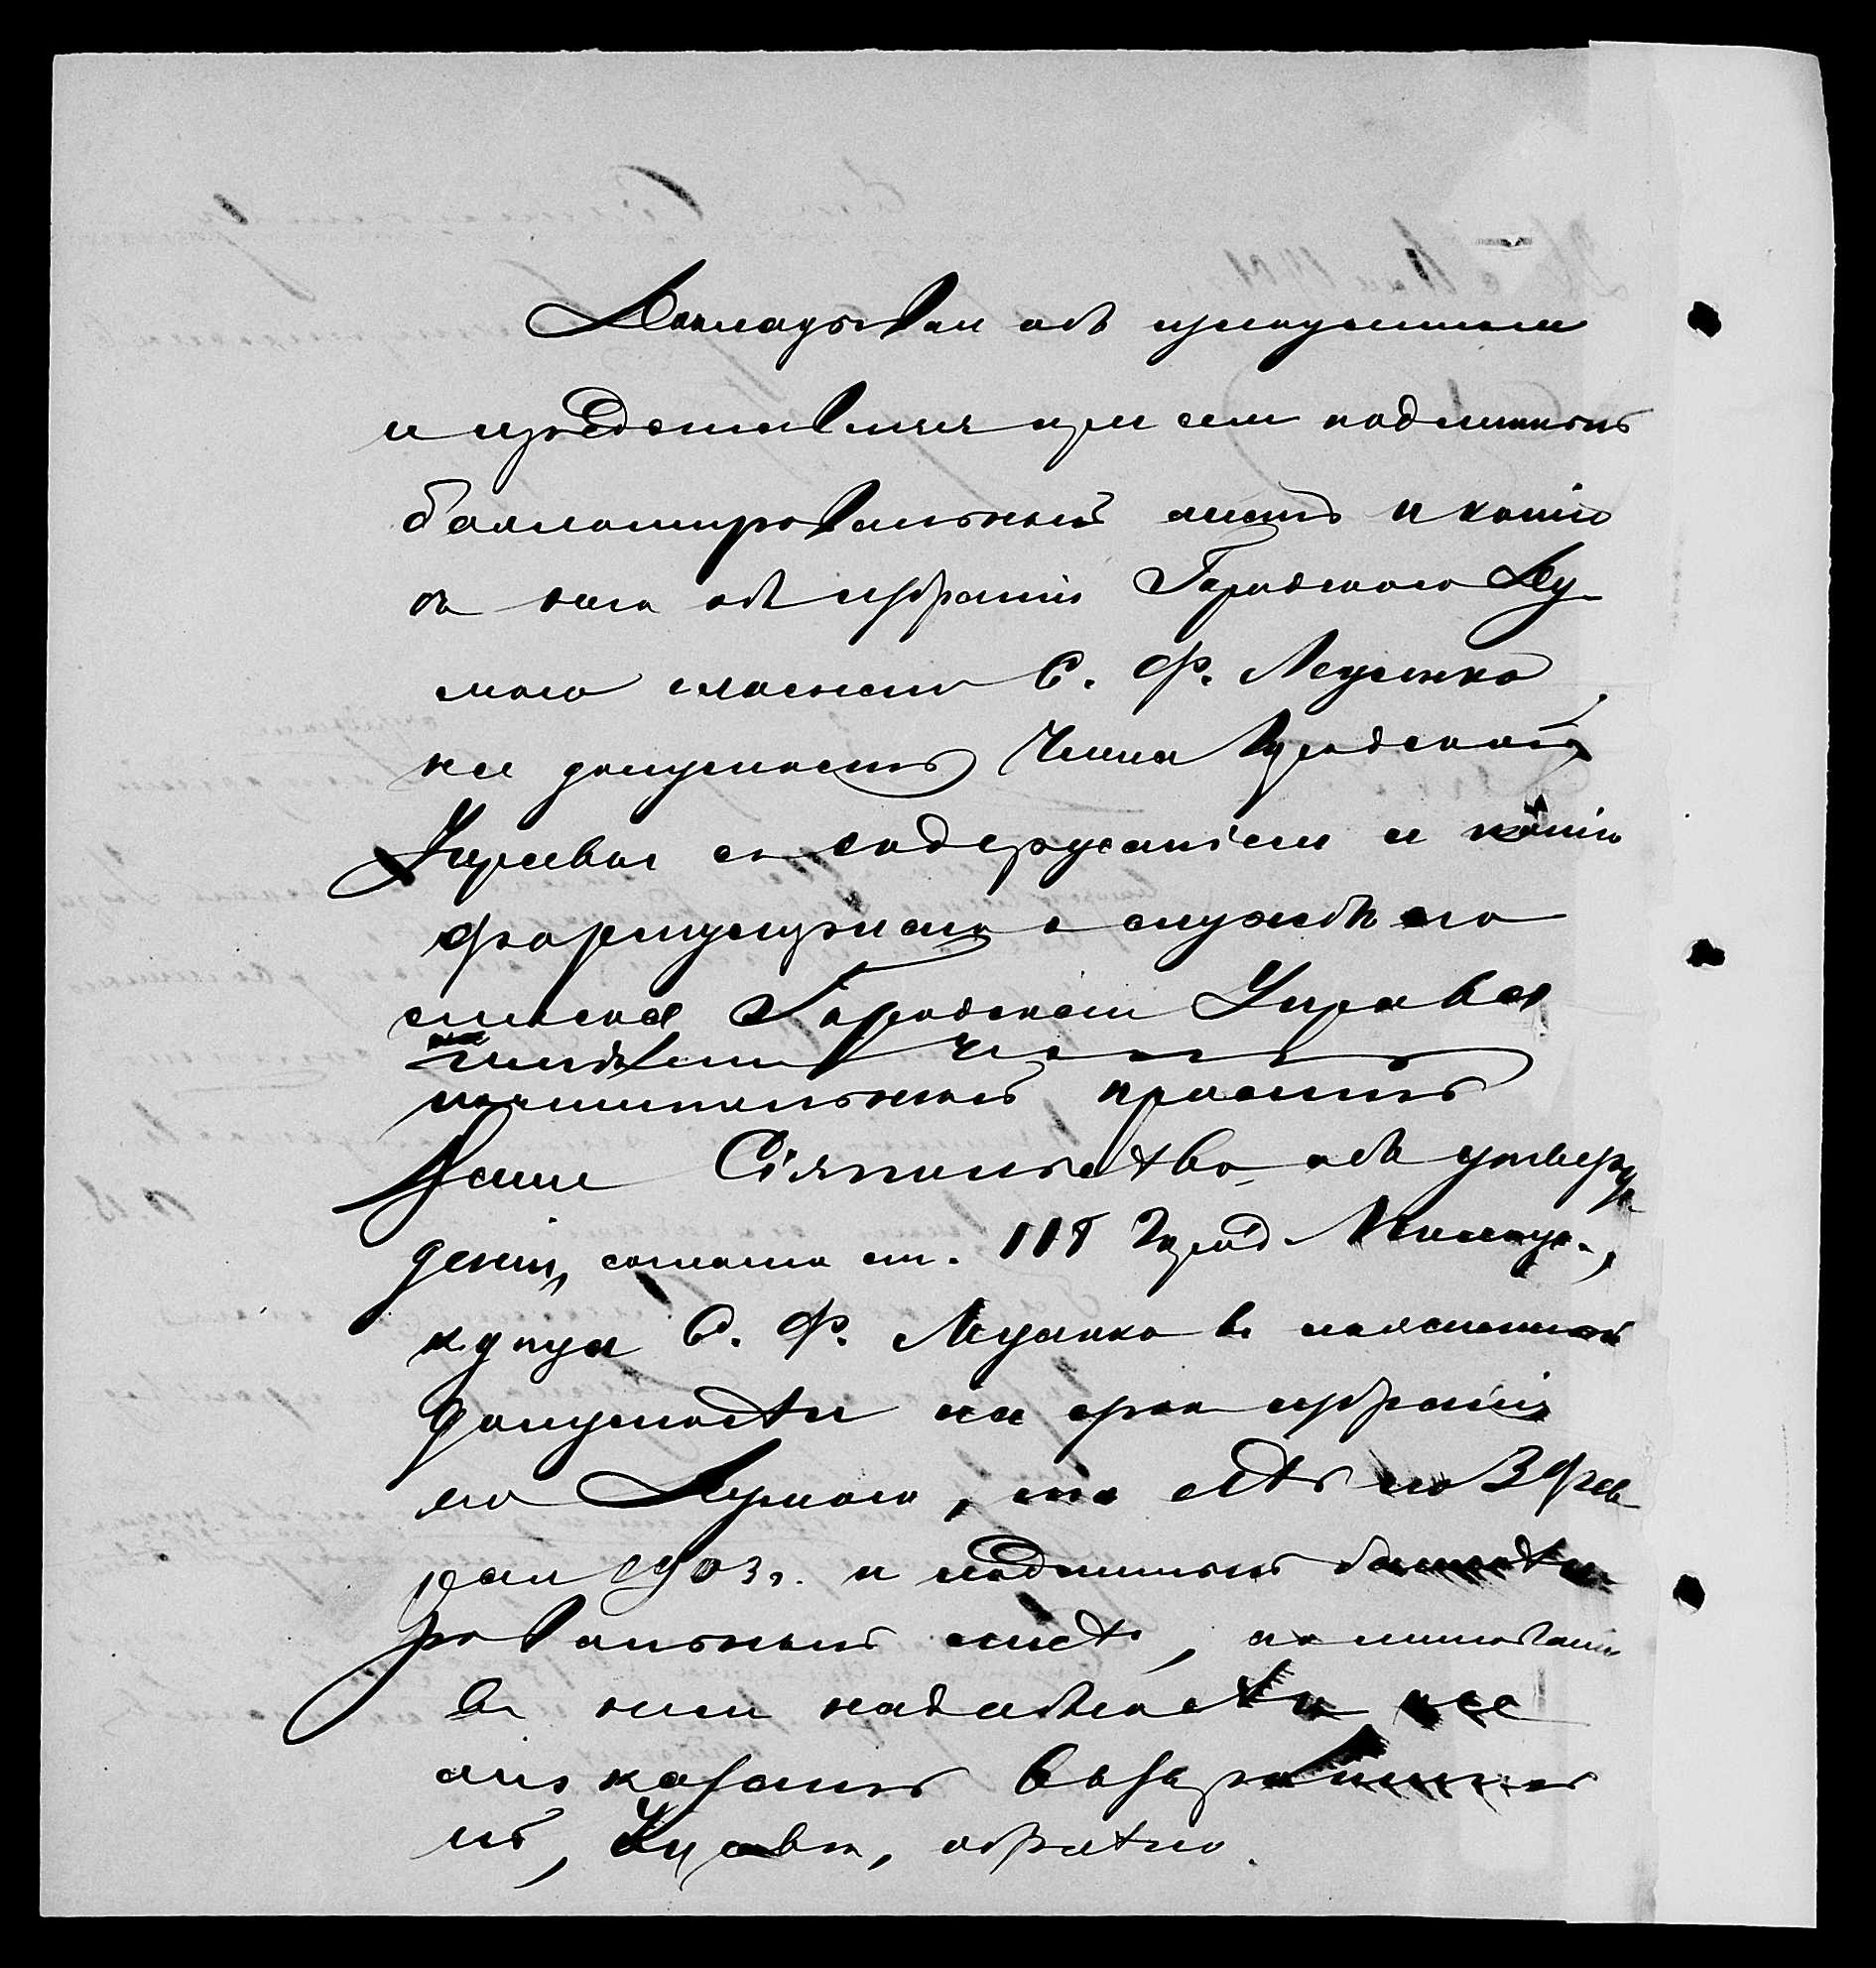 Докладывая объ изложенномъ
и представляя при семъ подлинный
баллотировальный листъ и копію
съ него объ избраніи Городскою Ду-
мою гласнаго С. Ф.
на должность Члена Городской
Управы съ содержаніемъ и копію
формулярнаго о службѣ его
списка Городская Управа
почтительнѣйше проситъ
Ваше Сіятельство объ утверж-
деніи, согласно ст. 118 Город. Полож.,
купца С. Ф. въ
должности на срокъ избранія
его Думою, то есть по 3 фев
раля 1903 г. и подлинный баллоти
ровальный листъ, по минованіи
въ немъ надобности, не
отказать возвратить
ей, Управѣ, обратно.